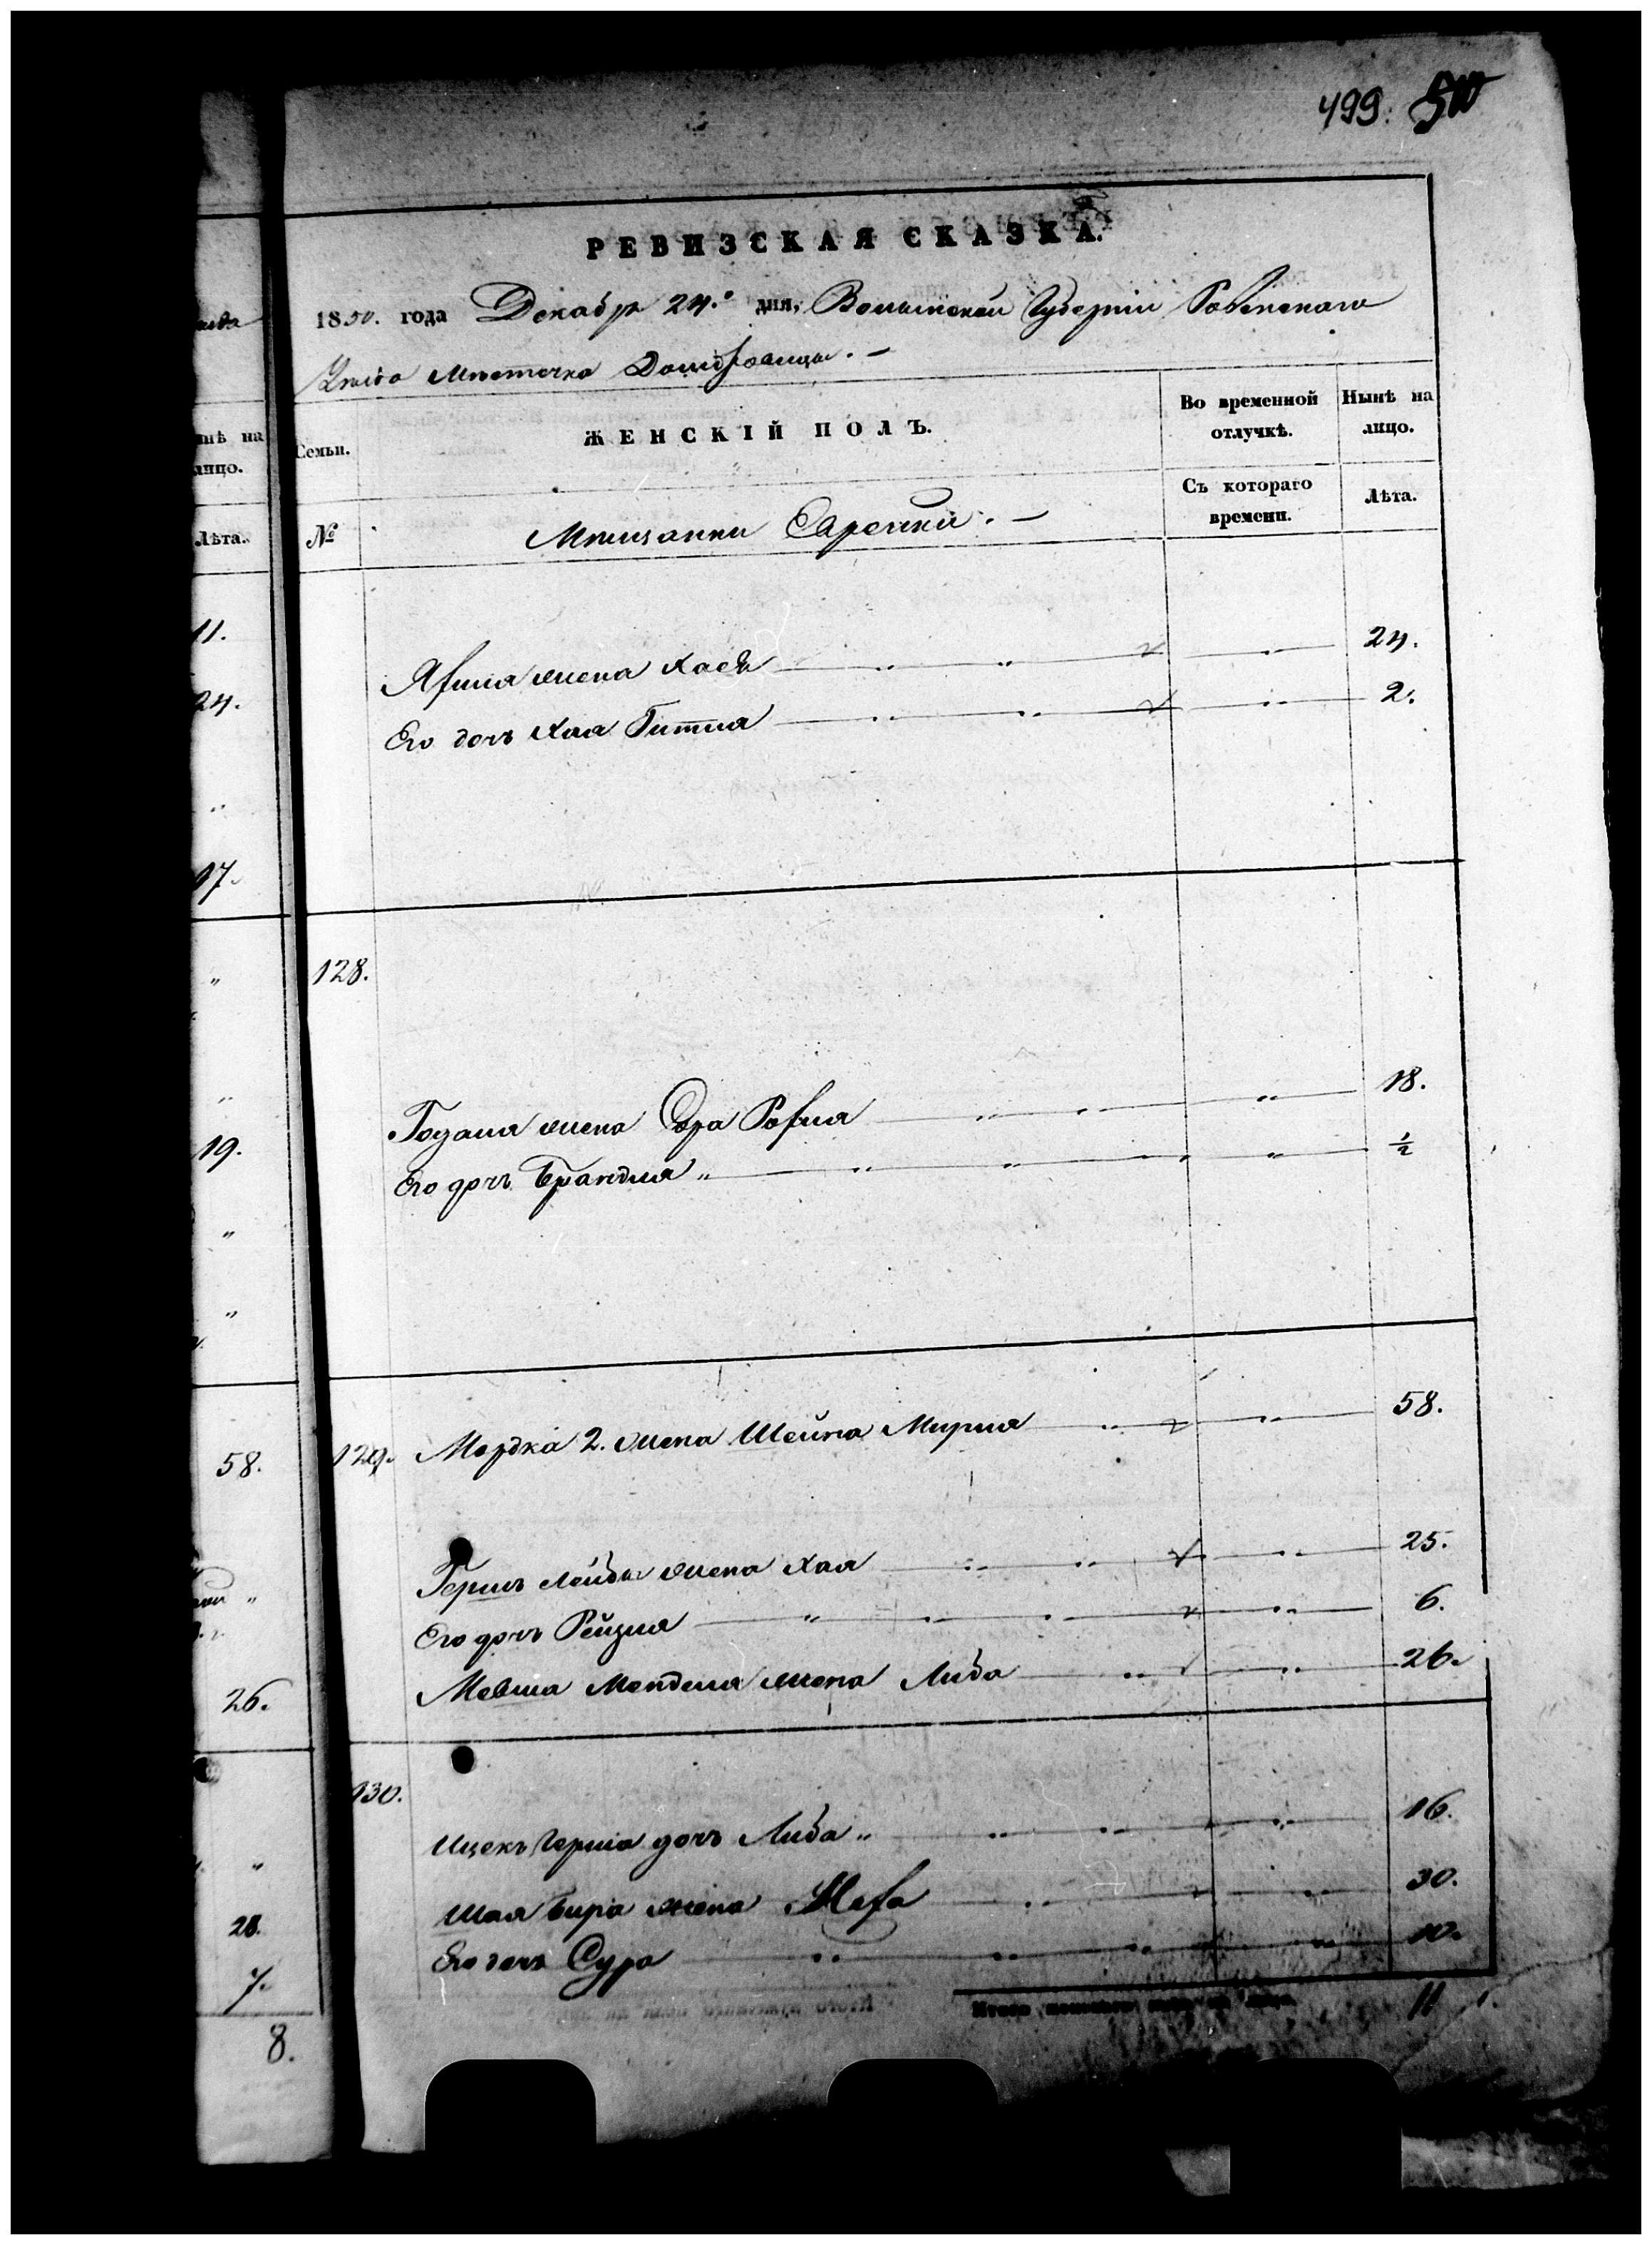 499.
РЕВИЗСКАЯ СКАЗКА.
1850. года Декабря 24.º дня, Волынской Губернiи Ровенскаго
Уѣзда Мѣстечка Домбровицы. —
Семьи.
ЖЕНСКIЙ ПОЛЪ.
Во временной отлучкѣ.
Нынѣ на лицо.
№
Мѣщанки Еврейки. —
Съ котораго времени.
Лѣта.
жена Хася 24.
Его дочь Хая Гитля 2.
128.
жена Сора Рохля 18.
Его дочь Брандля 1/2
129. Мордка 2. жена Шейна Мирля 58.
Гершъ Лейбы жена Хая 25.
Его дочь Рейзля 6.
Мовша Мендля жена Либа 26.
130.
Ицекъ Герша дочь Либа 16.
Шая Бира жена 30.
Его дочь Сура 10.
Итого женскаго пола на лицо 11
нѣ на
лицо.
Лѣта.
11.
24.
17.
19.
58.
26.
28.
7.
8.